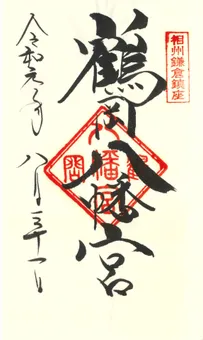 相州鎌倉鎮座
鶴岡八幡宮
令和元年
八月三十一日